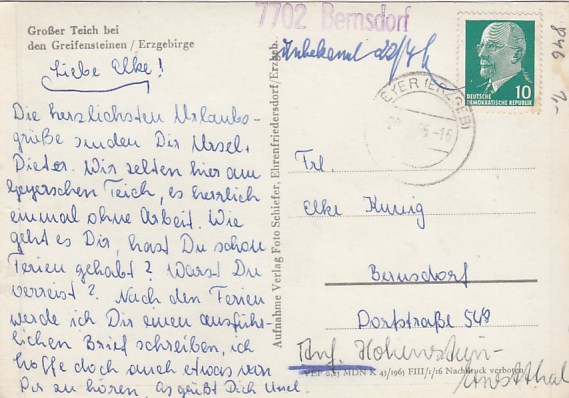 7702 Bernsdorf
Großer Teich bei
den Greifensteinen / Erzgebirge
Unbekannt 22/4
Liebe Elke!
DEUTSCHE
DEMOKRATISCHE REPUBLIK
10
846
1,-
GEYER (ERZGEB)
Die herzlichsten Urlaubs-
grüße senden Dir Ursel,
Dieter. Wir zelten hier am
Geyerschen Teich, es herrlich
einmal ohne Arbeit. Wie
geht es Dir, hast Du schon
Ferien gehabt? Warst Du
verreist? Nach den Ferien
werde ich Dir einen ausführ-
lichen Brief schreiben, ich
hoffe doch auch etwas von
Dir zu hören. Es grüßt Dich Ursel.
Aufnahme Verlag Foto Schiefer, Ehrenfriedersdorf/Erzgeb.
Frl.
Elke Kunig
Bernsdorf
Dorfstraße 548
Hohenstein-
Ernstthal
VEP 0,15 MDN R 43/1965 FIII/1/16 Nachdruck verboten